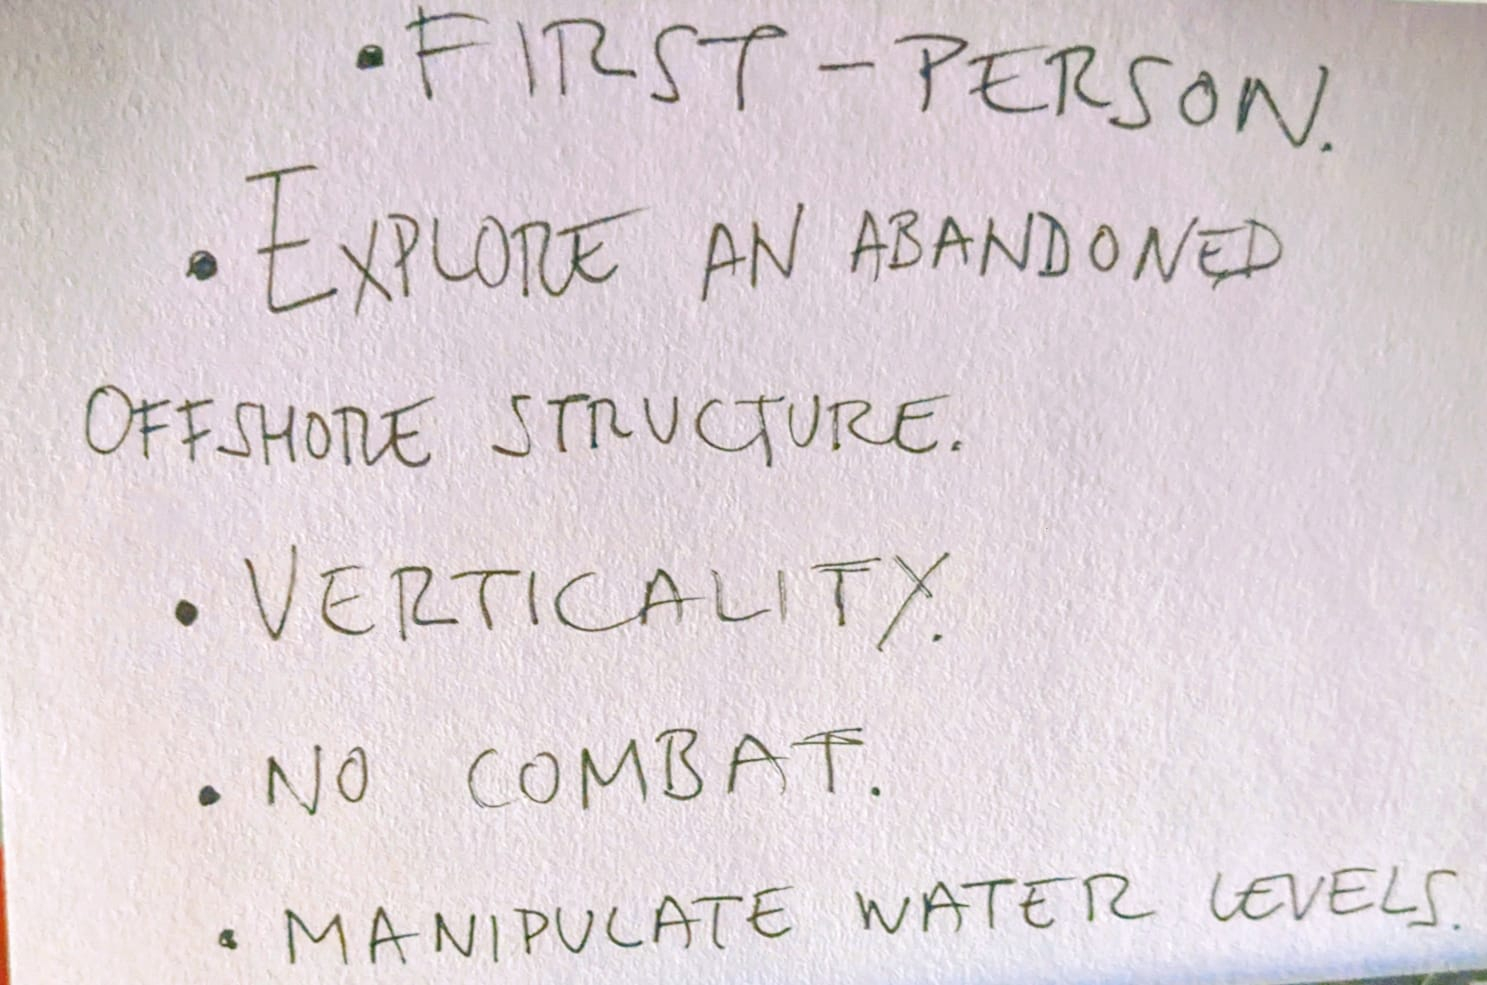 • FIRST-PERSON.
• EXPLORE AN ABANDONED
OFFSHORE STRUCTURE.
• VERTICALITY.
• NO COMBAT.
• MANIPULATE WATER LEVELS.